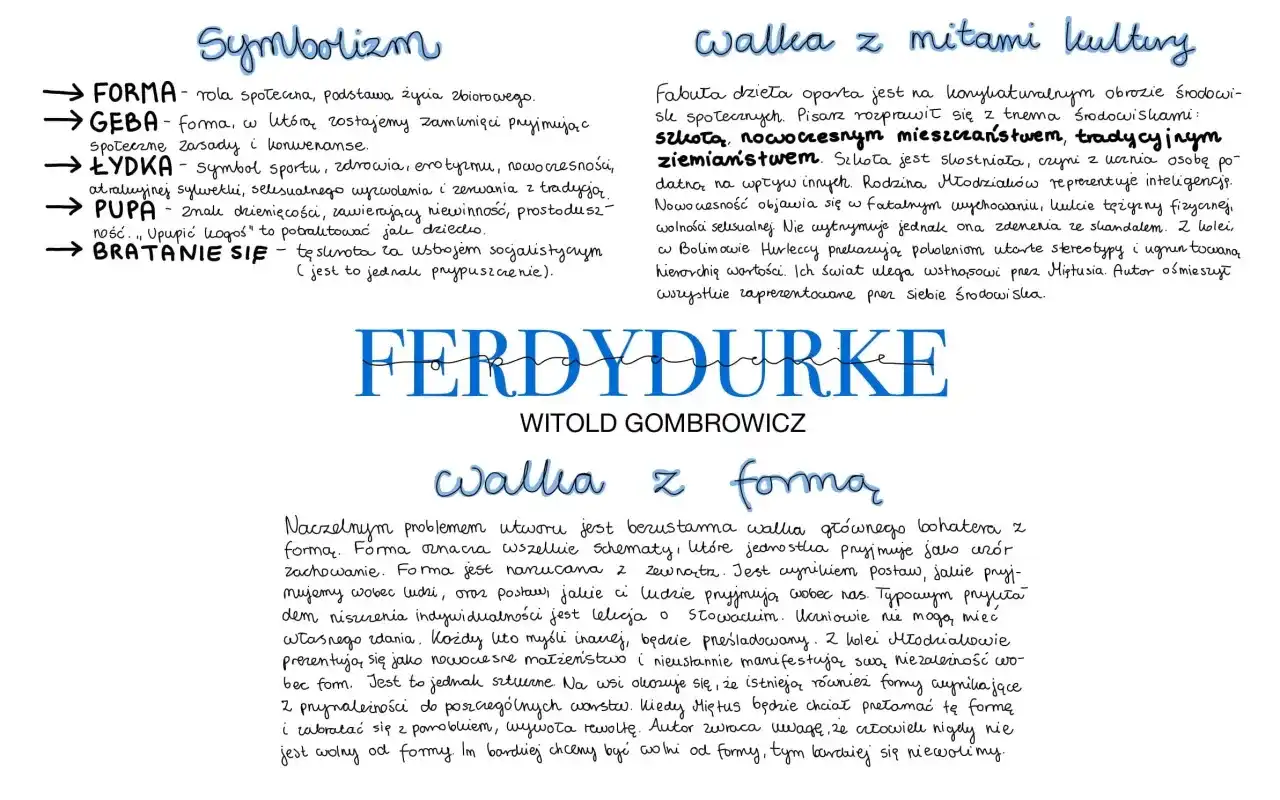 Symbolizm
→ FORMA - rola społeczna, podstawa życia zbiorowego.
→ GĘBA - forma, w którą zostajemy zamknięci przyjmując
społeczne zasady i konwenanse.
→ ŁYDKA - symbol sportu, zdrowia, erotyzmu, nowoczesności,
atrakcyjnej sylwetki, seksualnego wyzwolenia i zerwania z tradycją.
→ PUPA - znak dziecięcości, zawierający niewinność, prostodusz-
ność. „Upupić kogoś" to potraktować jak dziecko.
→ BRATANIE SIĘ - tęsknota za ustrojem socjalistycznym
(jest to jednak przypuszczenie).
walka z mitami kultury
Fabuła dzieła oparta jest na karykaturalnym obrazie środowi-
sk społecznych. Pisarz rozprawił się z trzema środowiskami:
szkołą, nowoczesnym mieszczaństwem, tradycyjnym
ziemiaństwem. Szkoła jest skostniała, czyni z ucznia osobę po-
datną na wpływ innych. Rodzina Młodziaków reprezentuje inteligencję.
Nowoczesność objawia się w fatalnym wychowaniu, kulcie tężyzny fizycznej,
wolności seksualnej. Nie wytrzymuje jednak ona zderzenia ze skandalem. Z kolei,
w Bolimowie Hurleccy przekazują pokoleniom utarte stereotypy i ugruntowaną
hierarchię wartości. Ich świat ulega wstrząsowi przez Miętusa. Autor ośmieszył
wszystkie zaprezentowane przez siebie środowiska.
FERDYDURKE
opracowanie
WITOLD GOMBROWICZ
walka z formą
Naczelnym problemem utworu jest bezustanna walka głównego bohatera z
formą. Forma oznacza wszelkie schematy, które jednostka przyjmuje jako wzór
zachowanie. Forma jest narzucana z zewnątrz. Jest wynikiem postaw, jakie przyj-
mujemy wobec ludzi, oraz postaw, jakie ci ludzie przyjmują wobec nas. Typowym przykła-
dem niszczenia indywidualności jest lekcja o Słowackim. Uczniowie nie mogą mieć
własnego zdania. Każdy kto myśli inaczej, będzie prześladowany. Z kolei Młodziakowie
prezentują się jako nowoczesne małżeństwo i nieustannie manifestują swą niezależność wo-
bec form. Jest to jednak sztuczne. Na wsi okazuje się, że istnieją również formy wynikające
z przynależności do poszczególnych warstw. Kiedy Miętus będzie chciał przełamać tę formę
i zabratać się z parobkiem, wywoła rewoltę. Autor zwraca uwagę, że człowiek nigdy nie
jest wolny od formy. Im bardziej chcemy być wolni od formy, tym bardziej się niewolimy.